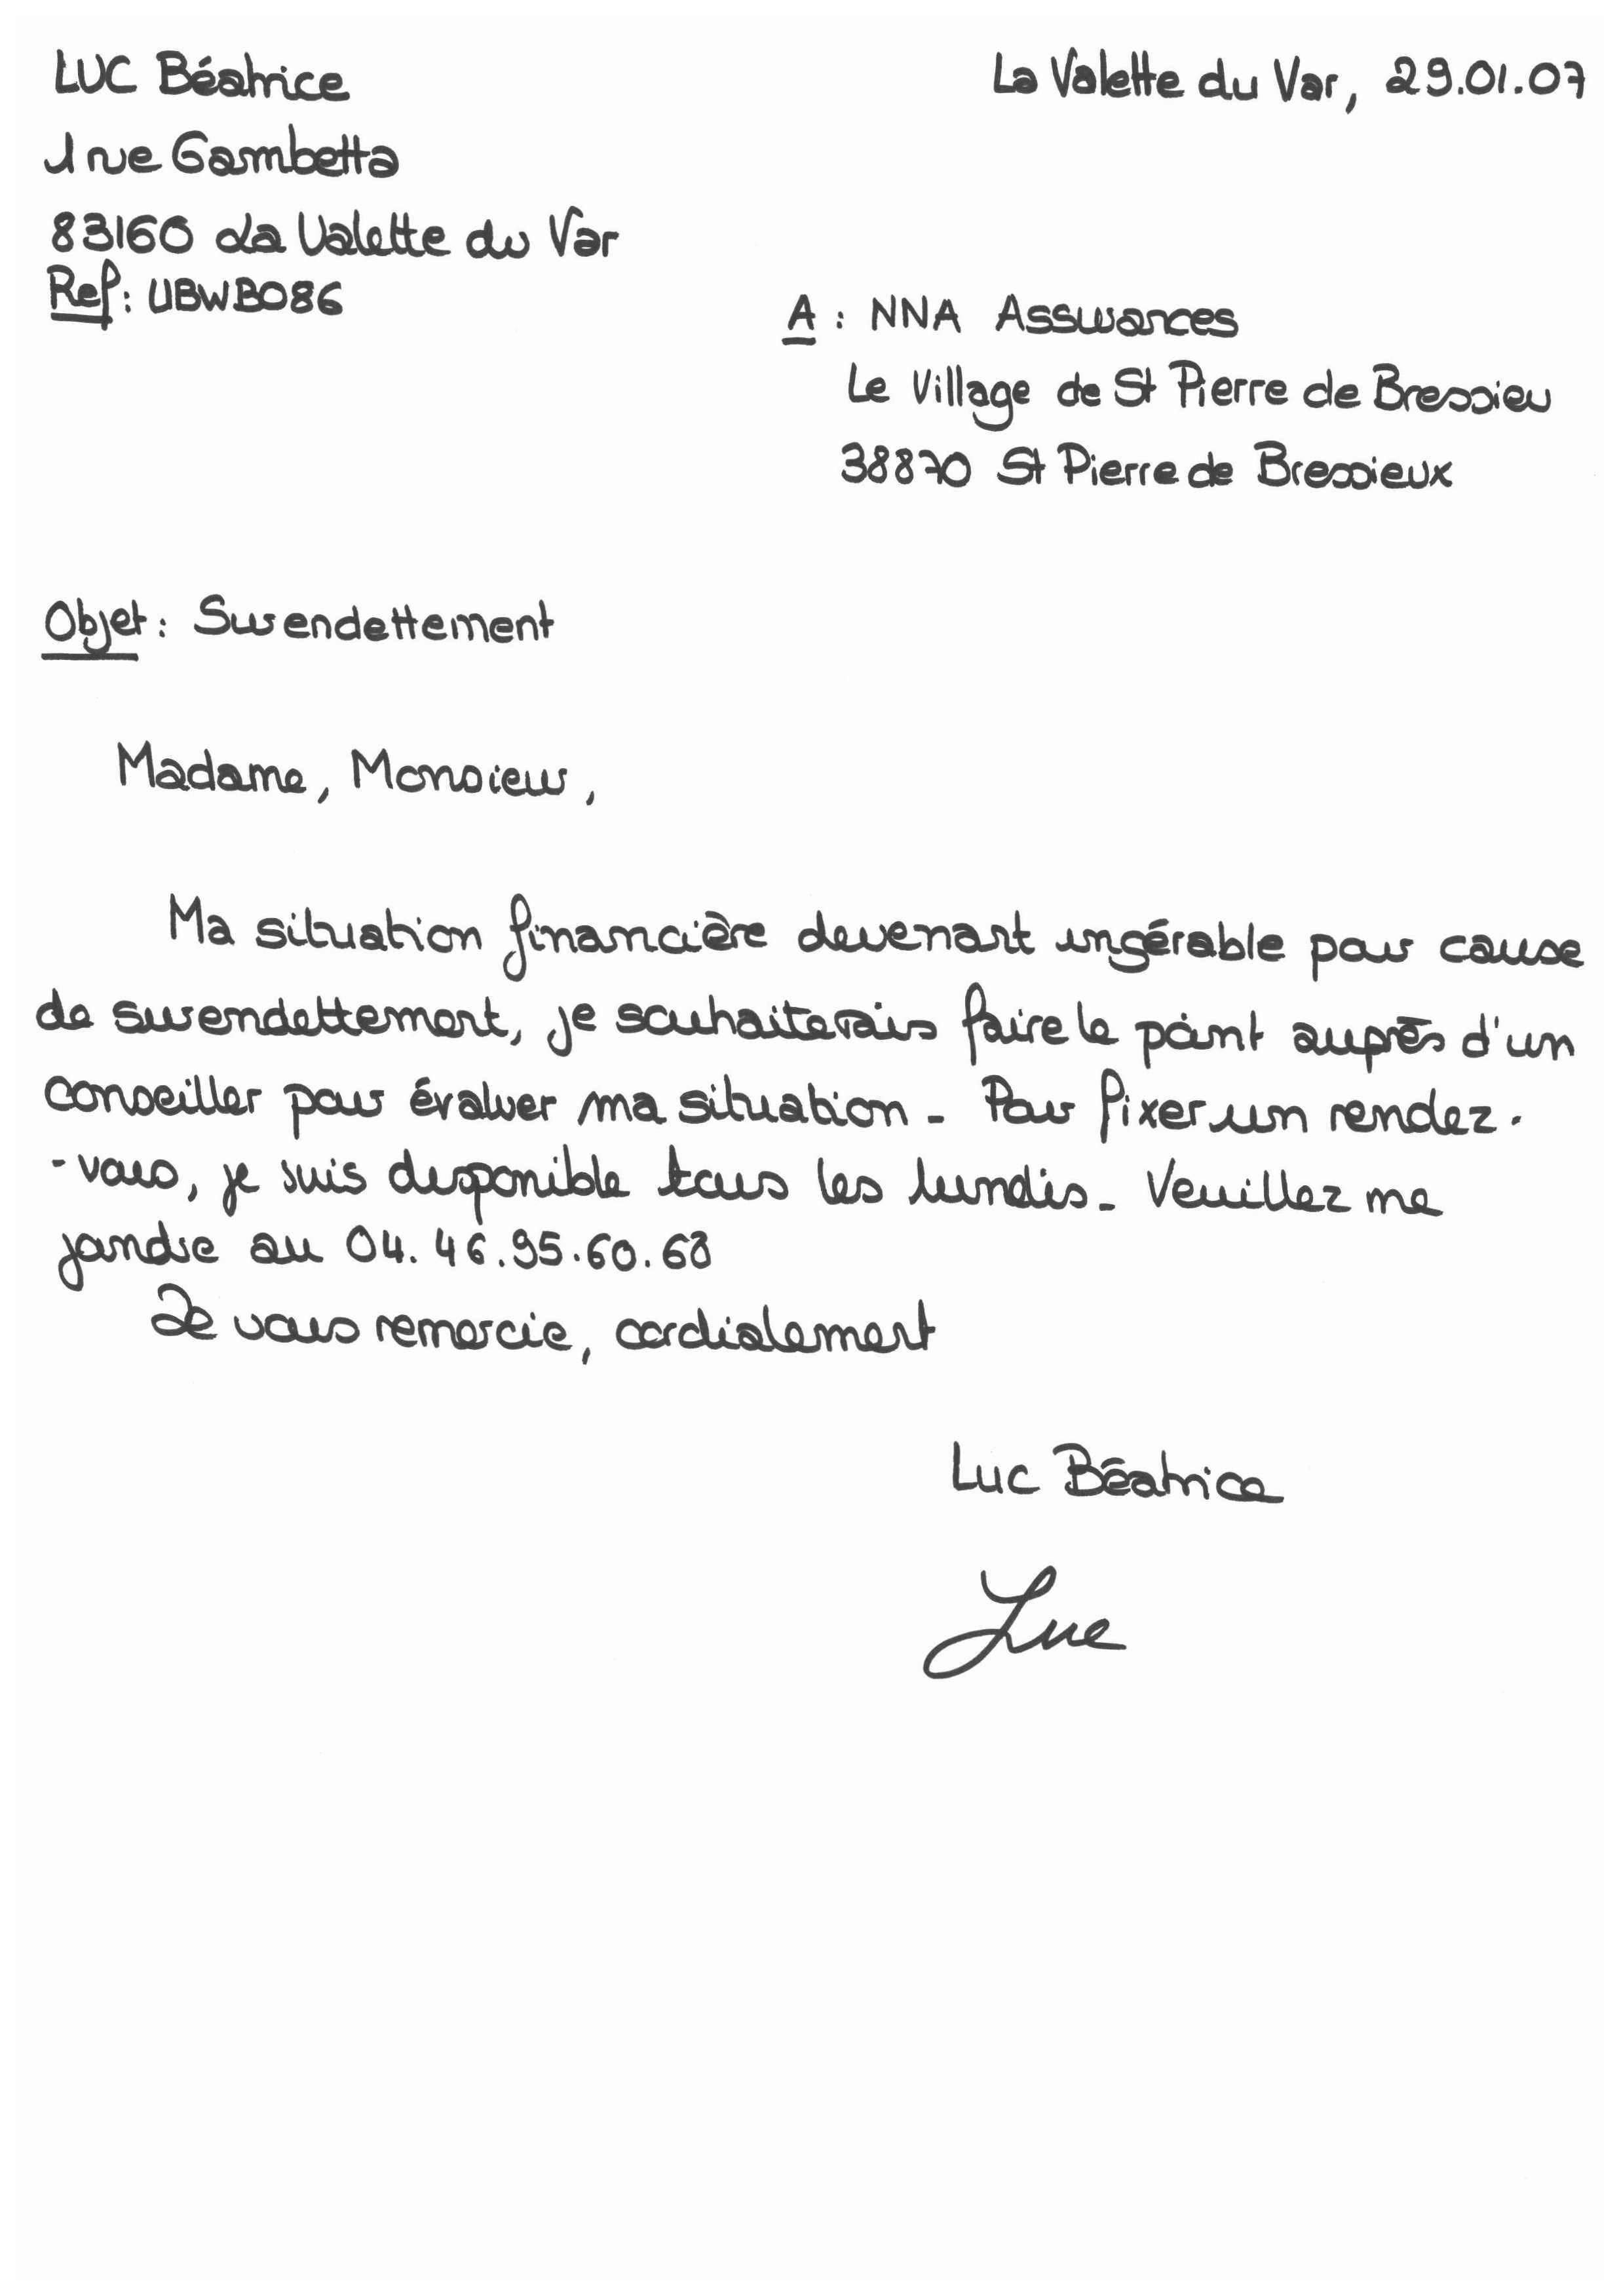 LUC Béatrice
La Valette du Var, 29.01.07
1 rue Gambetta
83160 La Valette du Var
Ref : UBWBO86
A : NNA Assurances
Le Village de St Pierre de Bressieu
38870 St Pierre de Bressieux
Objet : Surendettement
Madame, Monsieur,
Ma situation financière devenant ingérable pour cause
de surendettement, je souhaiterais faire le point auprès d'un
conseiller pour évaluer ma situation. Pour fixer un rendez-
-vous, je suis disponible tous les lundis. Veuillez me
joindre au 04.46.95.60.68
Je vous remercie, cordialement
Luc Béatrice
Luc